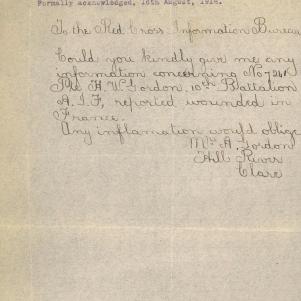 Formally acknowledged, 16th August, 1918.
To the Red Cross Information Bureau
Could you kindly give me any
information concerning No 7241
Pte H. W. Gordon. 10th Battalion
A.I.F, reported wounded in
France.
Any inflamation would oblige
Mrs A. Gordon
Hill River
Clare